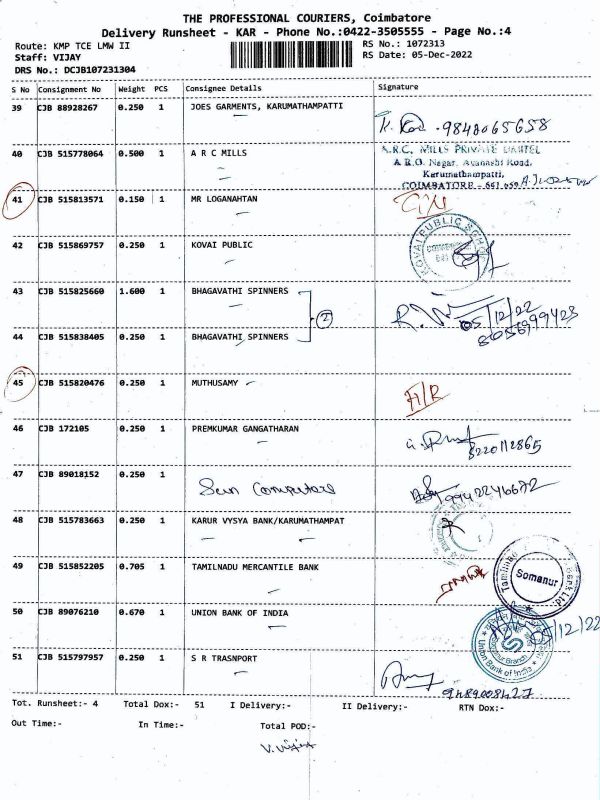 THE PROFESSIONAL COURIERS, Coimbatore
Delivery Runsheet - KAR - Phone No.:0422-3505555 - Page No.:4
Route: KMP TCE LMW II
RS No.: 1072313
Staff: VIJAY
RS Date: 05-Dec-2022
DRS No.: DCJB107231304
S No Consignment No Weight PCS Consignee Details Signature
39 CJB 88928267 0.250 1 JOES GARMENTS, KARUMATHAMPATTI
9843065658
40 CJB 515778064 0.500 1 A R C MILLS
A.R.C. MILLS PRIVATE LIMITED
A.R.O. Nagar, Avanashi Road,
Karumathampatti,
COIMBATORE - 641 659
41 CJB 515813571 0.150 1 MR LOGANAHTAN
42 CJB 515869757 0.250 1 KOVAI PUBLIC
KOVAI PUBLIC SCHOOL
43 CJB 515825660 1.600 1 BHAGAVATHI SPINNERS
2
05/12/22
8056999423
44 CJB 515838405 0.250 1 BHAGAVATHI SPINNERS
45 CJB 515820476 0.250 1 MUTHUSAMY
46 CJB 172105 0.250 1 PREMKUMAR GANGATHARAN
8220112865
47 CJB 89018152 0.250 1 Sun Computers
9942246672
48 CJB 515783663 0.250 1 KARUR VYSYA BANK/KARUMATHAMPAT
49 CJB 515852205 0.705 1 TAMILNADU MERCANTILE BANK
Somanur
50 CJB 89076210 0.670 1 UNION BANK OF INDIA
05/12/22
Union Bank of India
51 CJB 515797957 0.250 1 S R TRASNPORT
9489008427
Tot. Runsheet:- 4 Total Dox:- 51 I Delivery:- II Delivery:- RTN Dox:-
Out Time:- In Time:- Total POD:-